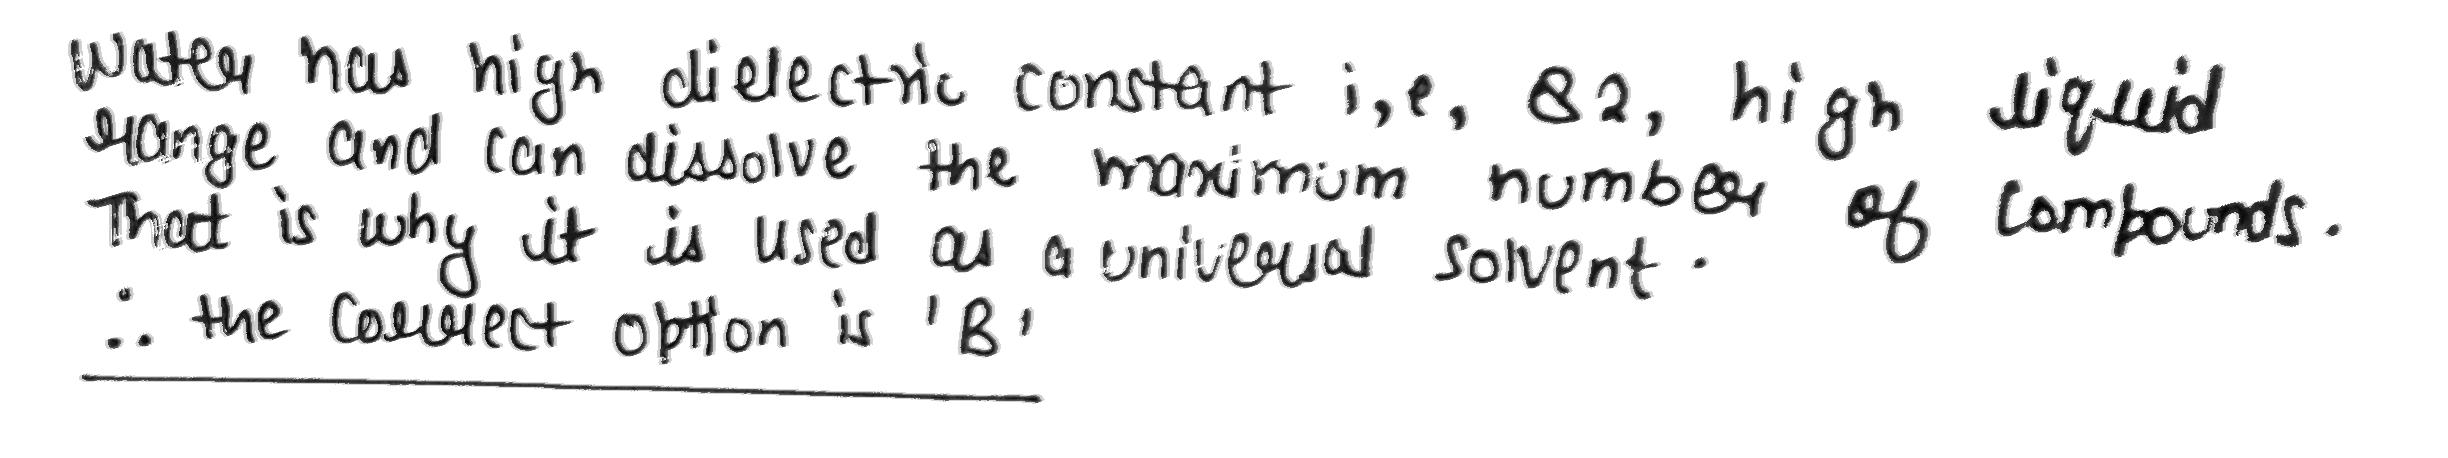 Water has high dielectric constant i,e, 82, high liquid
range and can dissolve the maximum number of compounds.
That is why it is used as a universal solvent.
∴ the correct option is 'B'